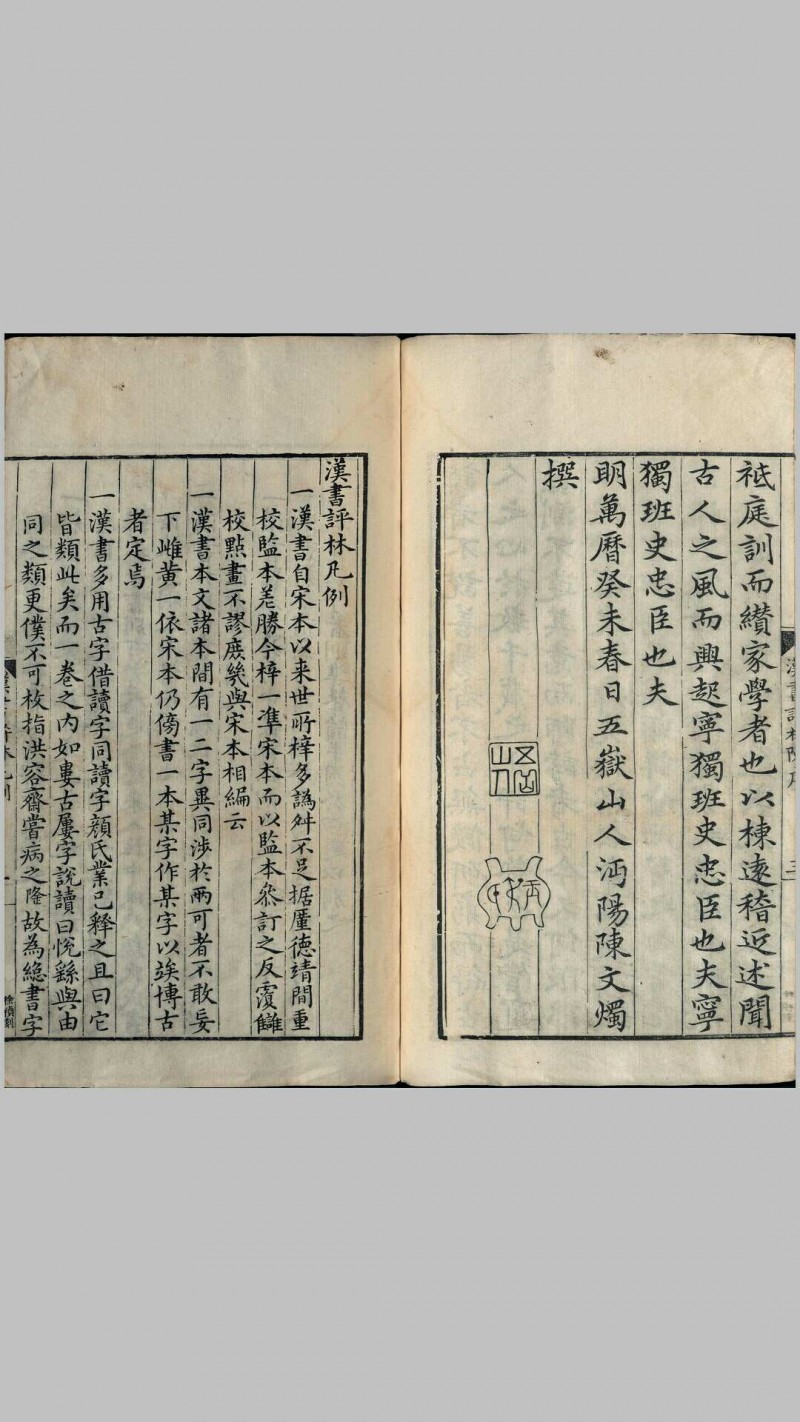 祗庭訓而纘家學者也以棟遠稽近述聞
古人之風而興起寧獨班史忠臣也夫寧
獨班史忠臣也夫
明萬曆癸未春日五嶽山人沔陽陳文燭
撰
漢書評林凡例
一漢書自宋本以来世所梓多譌舛不足据厪德靖間重
校監本差勝今梓一準宋本而以監本叅訂之反霞讎
校點畫不謬庻幾與宋本相編云
一漢書本文諸本間有一二字異同涉於兩可者不敢妄
下雌黄一依宋本仍傍書一本某字作某字以竢博古
者定焉
一漢書多用古字借讀字同讀字顔氏業已釋之且曰它
皆類此矣而一卷之内如婁古屢字說讀曰悅繇與由
同之類更僕不可枚指洪容齋嘗病之隆故為緫書字